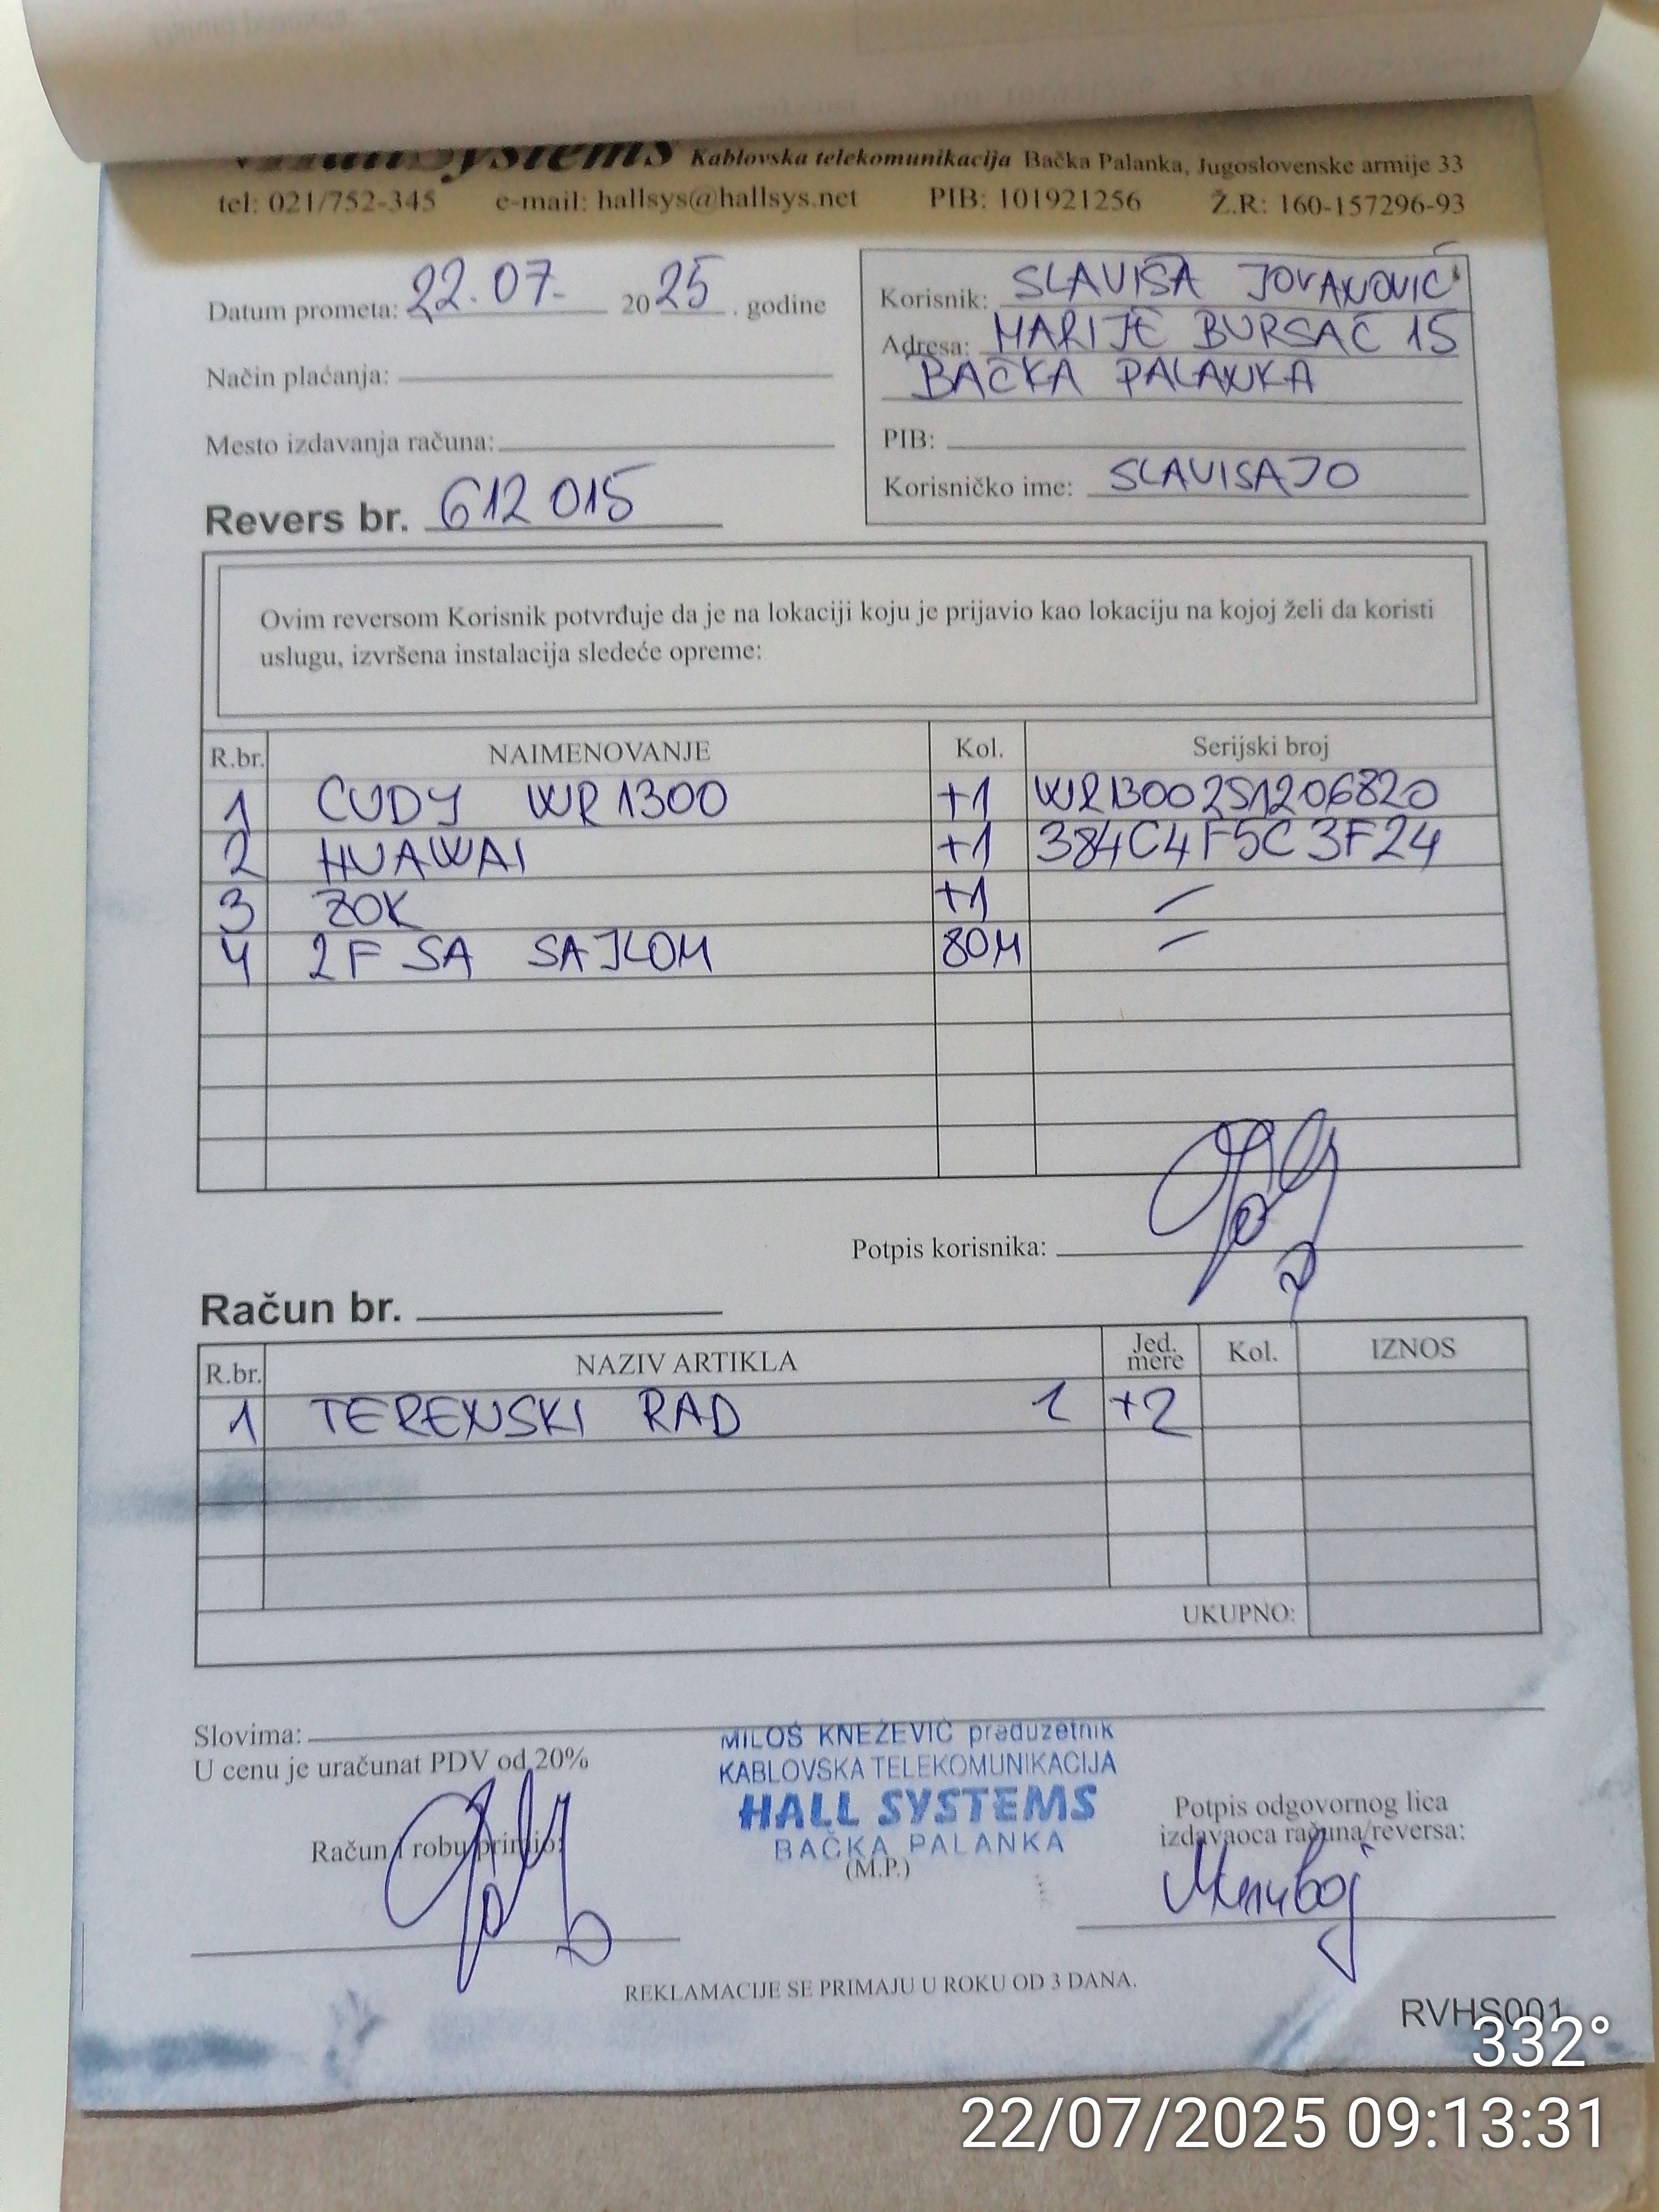 HallSystems Kablovska telekomunikacija Bačka Palanka, Jugoslovenske armije 33
tel: 021/752-345 e-mail: hallsys@hallsys.net PIB: 101921256 Ž.R: 160-157296-93
Datum prometa: 22.07. 2025. godine
Način plaćanja:
Mesto izdavanja računa:
Revers br. 612015
Korisnik: SLAVIŠA JOVANOVIĆ
Adresa: MARIJE BURSAĆ 15
BAČKA PALANKA
PIB:
Korisničko ime: SLAVISAJO
Ovim reversom Korisnik potvrđuje da je na lokaciji koju je prijavio kao lokaciju na kojoj želi da koristi
uslugu, izvršena instalacija sledeće opreme:
R.br. NAIMENOVANJE Kol. Serijski broj
1 CUDY WR1300 +1 WR1300251206820
2 HUAWAI +1 384C4F5C3F24
3 ZOK +1 –
4 2F SA SAJLOM 80M –
Potpis korisnika:
Račun br.
R.br. NAZIV ARTIKLA Jed. mere Kol. IZNOS
1 TERENSKI RAD 1 +2
UKUPNO:
Slovima:
U cenu je uračunat PDV od 20%
MILOŠ KNEŽEVIĆ preduzetnik
KABLOVSKA TELEKOMUNIKACIJA
HALL SYSTEMS
BAČKA PALANKA
(M.P.)
Račun i robu primio:
Potpis odgovornog lica
izdavaoca računa/reversa:
REKLAMACIJE SE PRIMAJU U ROKU OD 3 DANA.
RVHS001
332°
22/07/2025 09:13:31